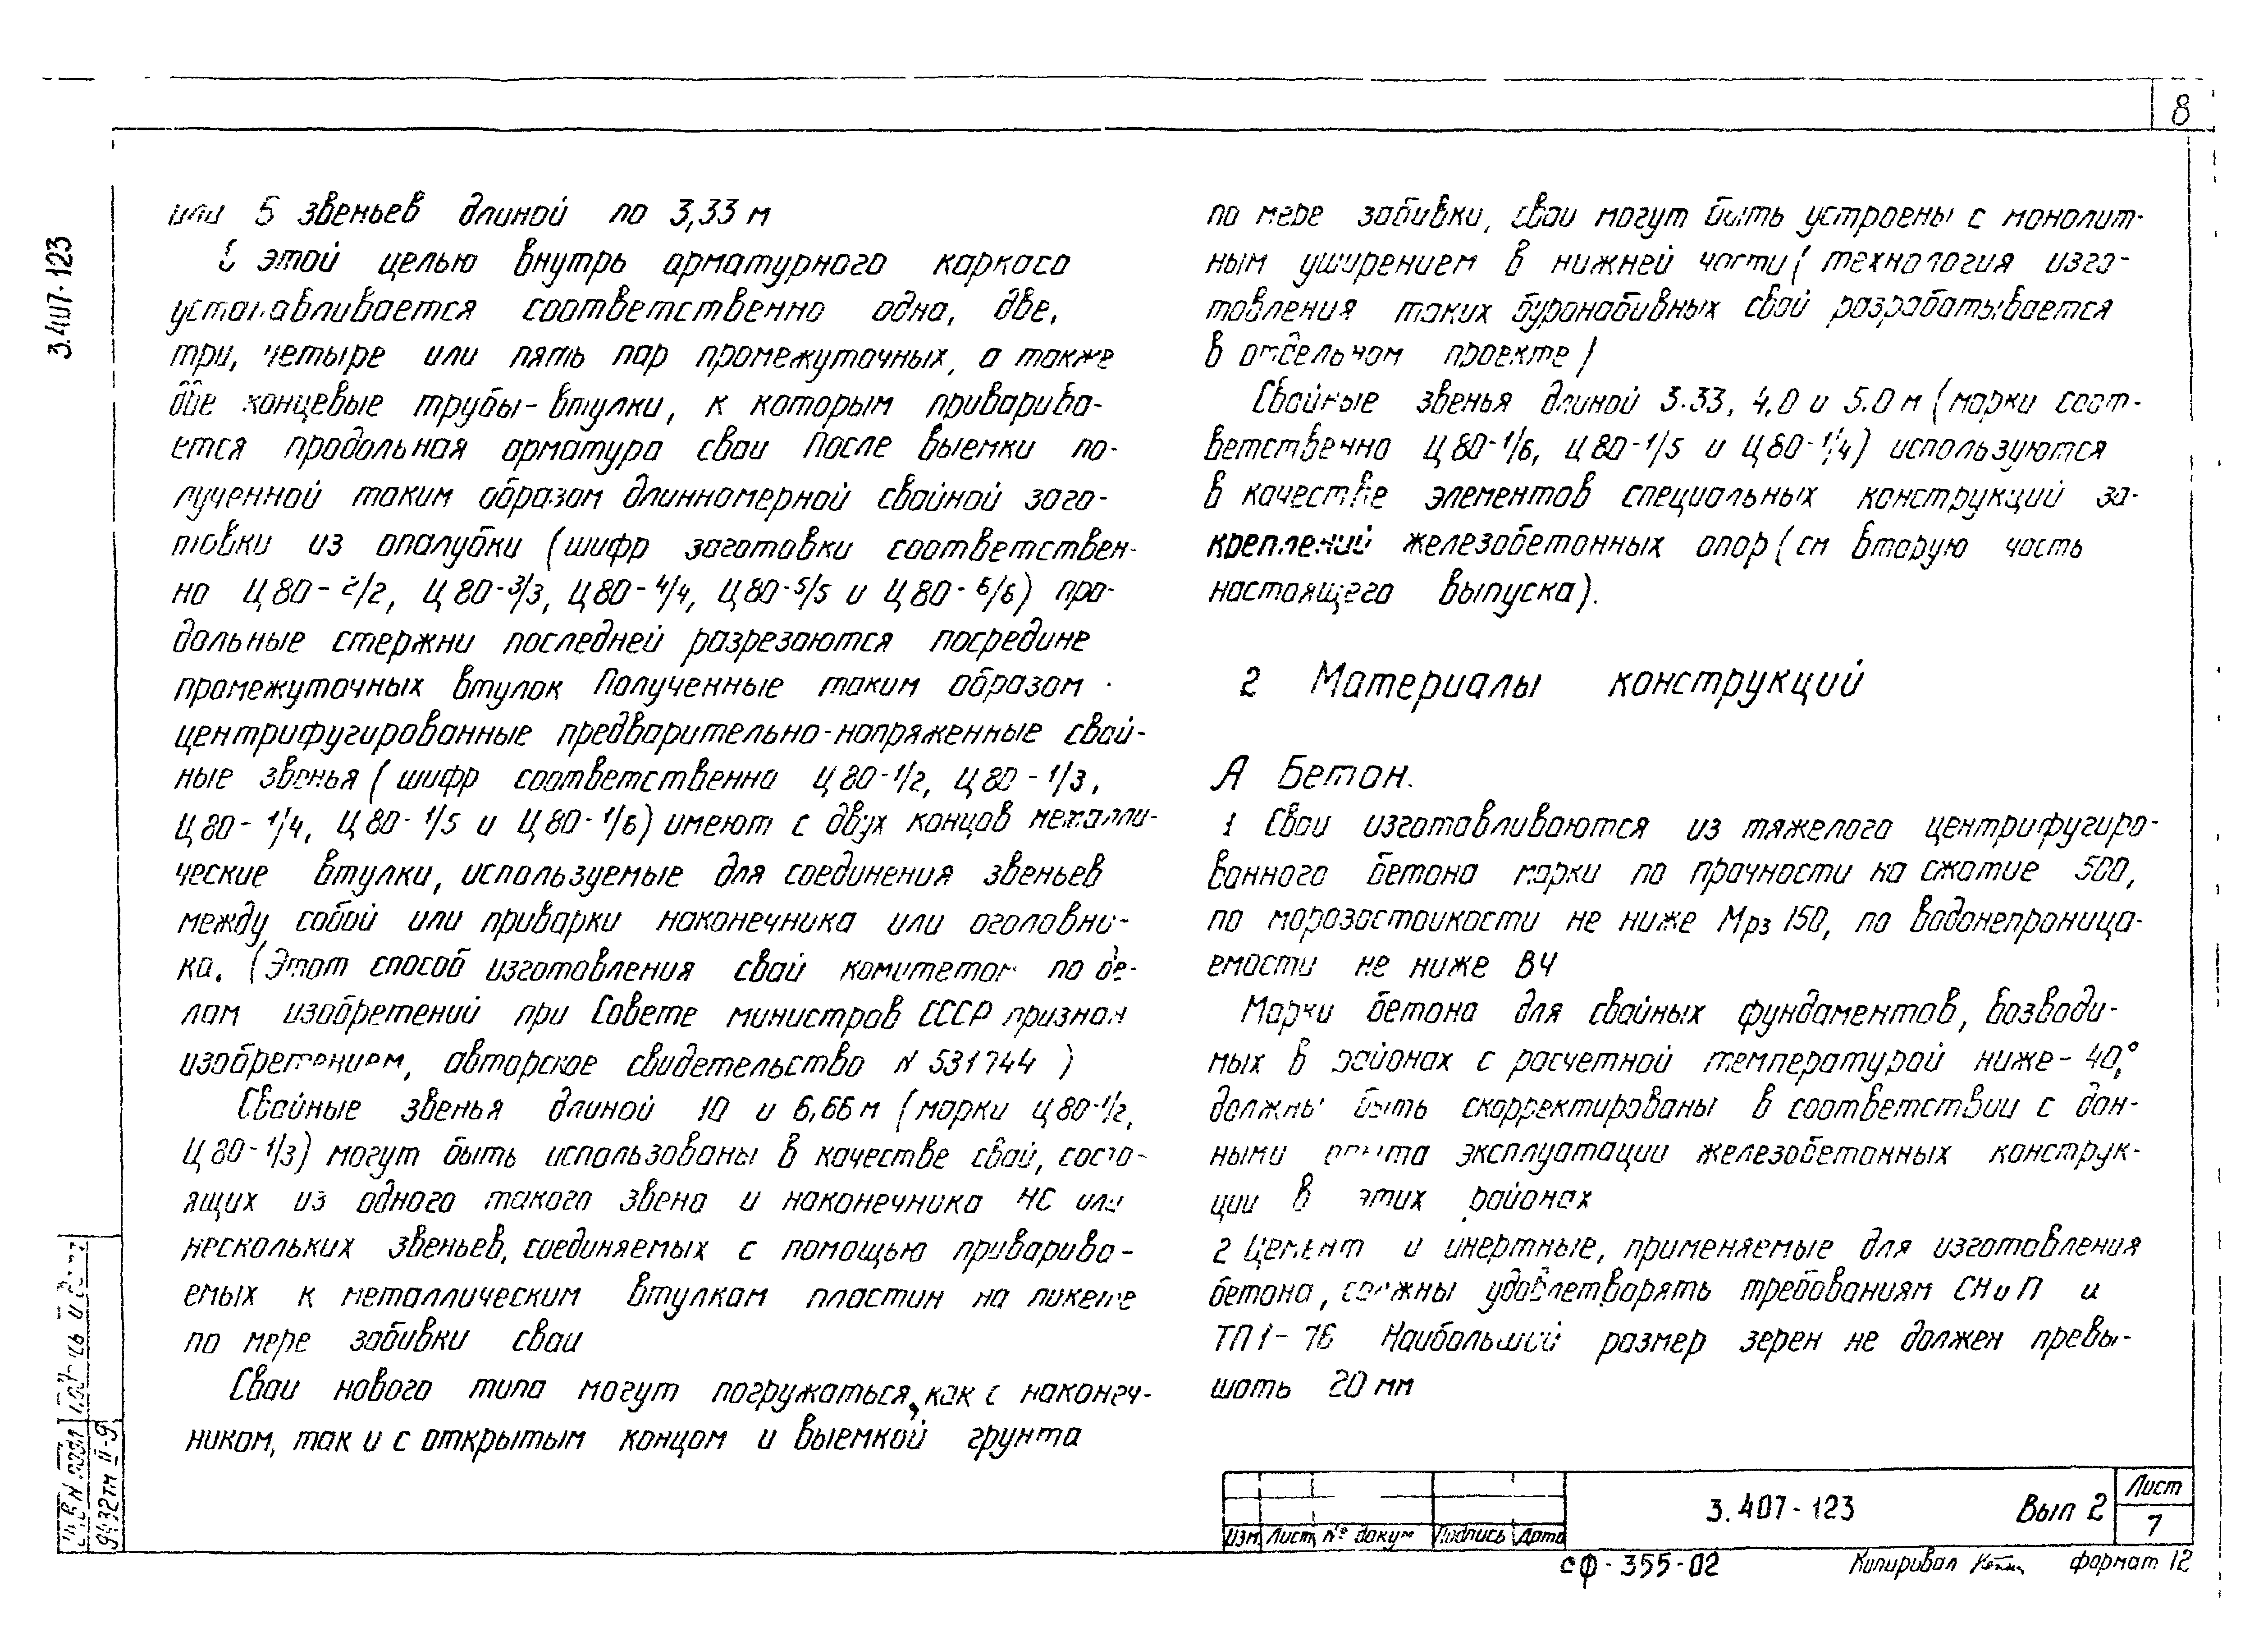 8
3.407-123
или 5 звеньев длиной по 3,33 м
С этой целью внутрь арматурного каркаса
устанавливается соответственно одна, две,
три, четыре или пять пар промежуточных, а также
две концевые трубы-втулки, к которым приварива-
ется продольная арматура сваи После выемки по-
лученной таким образом длинномерной свайной заго-
товки из опалубки (шифр заготовки соответствен-
но Ц80-2/2, Ц80-3/3, Ц80-4/4, Ц80-5/5 и Ц80-6/6) про-
дольные стержни последней разрезаются посредине
промежуточных втулок Полученные таким образом
центрифугированные предварительно-напряженные свай-
ные звенья (шифр соответственно Ц80-1/2, Ц80-1/3,
Ц80-1/4, Ц80-1/5 и Ц80-1/6) имеют с двух концов металли-
ческие втулки, используемые для соединения звеньев
между собой или приварки наконечника или оголовни-
ка. (Этот способ изготовления свай комитетом по де-
лам изобретений при Совете министров СССР признан
изобретением, авторское свидетельство N 531744)
Свайные звенья длиной 10 и 6,66 м (марки Ц80-1/2,
Ц80-1/3) могут быть использованы в качестве свай, состо-
ящих из одного такого звена и наконечника НС или
нескольких звеньев, соединяемых с помощью приварива-
емых к металлическим втулкам пластин на пикете
по мере забивки сваи
Сваи нового типа могут погружаться, как с наконеч-
ником, так и с открытым концом и выемкой грунта
по мере забивки, сваи могут быть устроены с монолит-
ным уширением в нижней части (технология изго-
товления таких буронабивных свай разрабатывается
в отдельном проекте)
Свайные звенья длиной 3.33, 4,0 и 5.0 м (марки соот-
ветственно Ц80-1/6, Ц80-1/5 и Ц80-1/4) используются
в качестве элементов специальных конструкций за-
креплений железобетонных опор (см вторую часть
настоящего выпуска).
2 Материалы конструкций
А Бетон.
1 Сваи изготавливаются из тяжелого центрифугиро-
ванного бетона марки по прочности на сжатие 500,
по морозостоикости не ниже Мрз 150, по водонепроница-
емости не ниже В4
Марки бетона для свайных фундаментов, возводи-
мых в районах с расчетной температурой ниже -40,°
должны быть скорректированы в соответствии с дан-
ными опыта эксплуатации железобетонных конструк-
ции в этих районах
2 Цемент и инертные, применяемые для изготовления
бетона, должны удовлетворять требованиям СНиП и
ТП 1-76 Наибольший размер зерен не должен превы-
шать 20 мм
Изм Лист № докум Подпись Дата
3.407-123 Вып 2
Лист
7
сф-355-02 Копировал формат 12
9432тм II-9